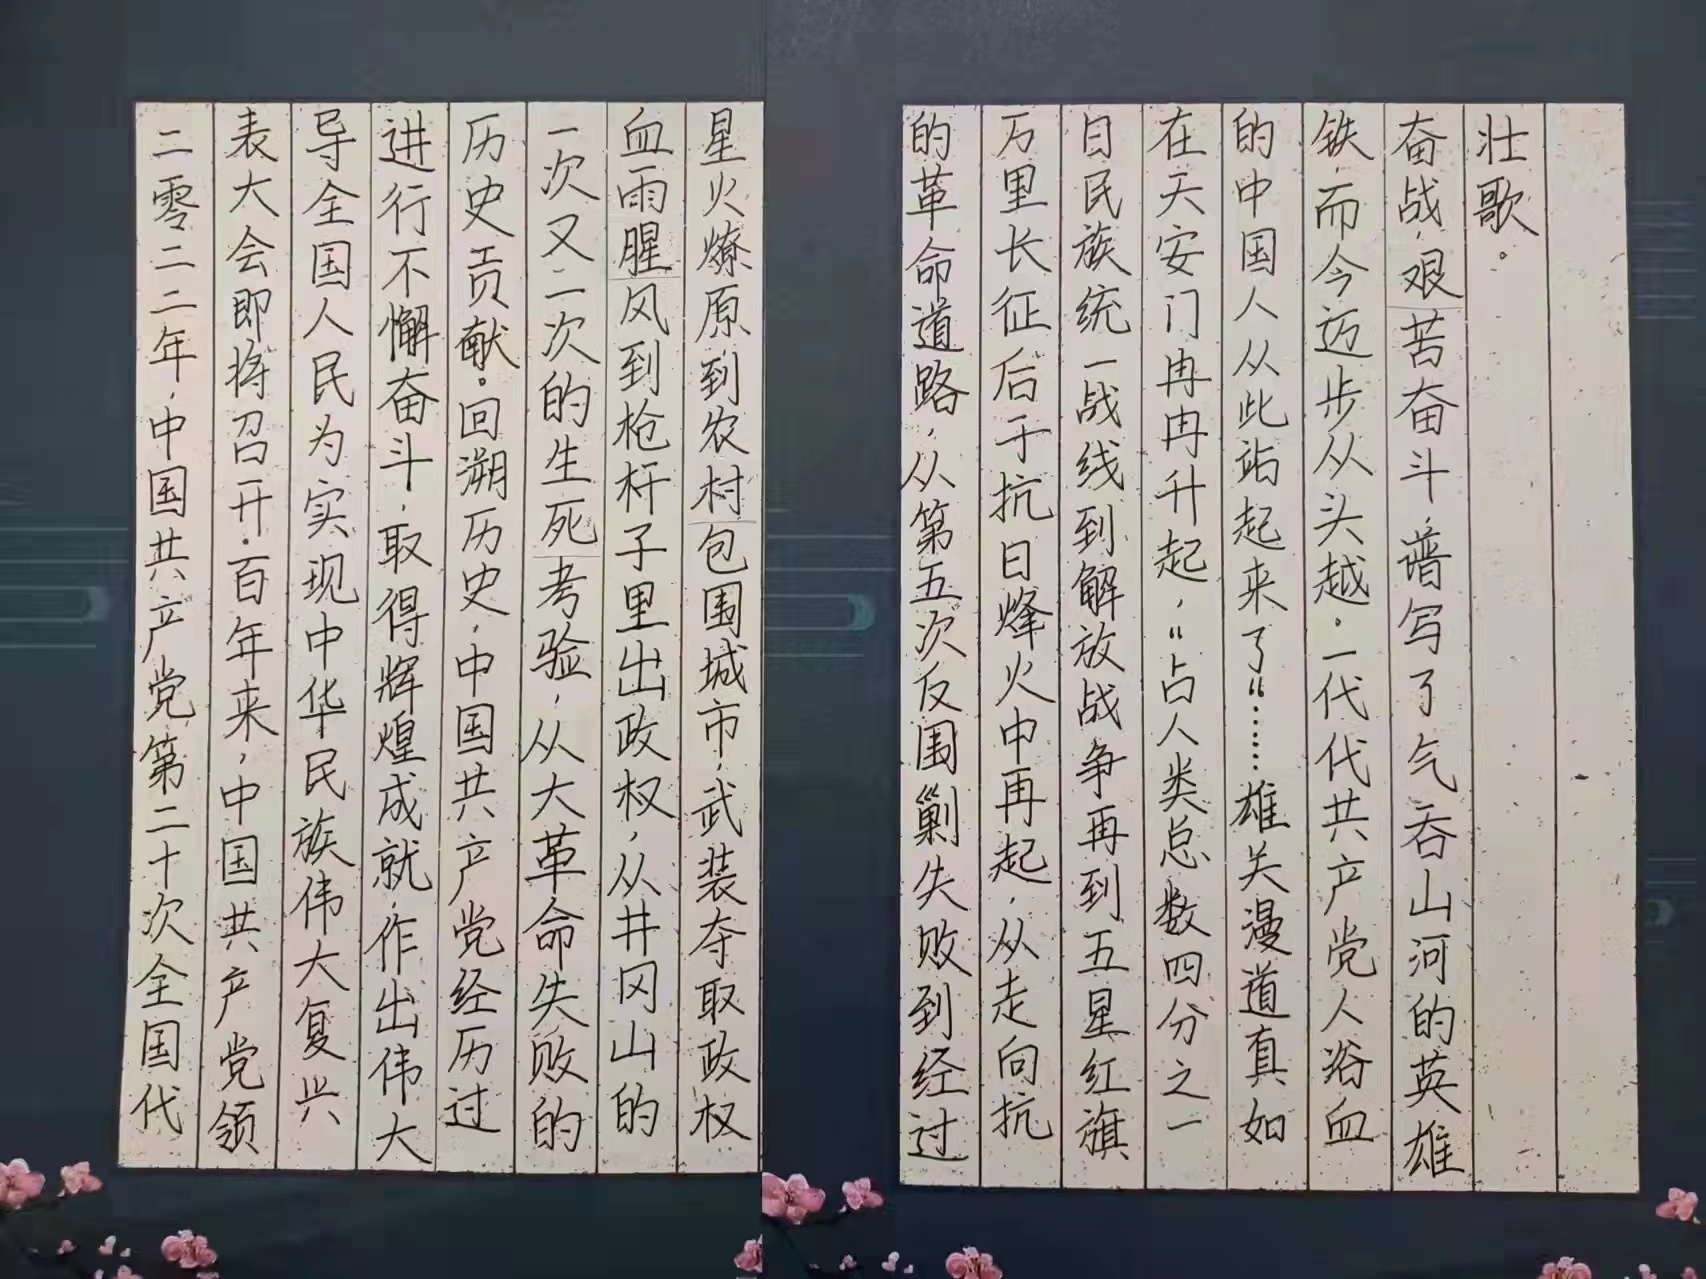 二零二二年，中国共产党第二十次全国代
表大会即将召开。百年来，中国共产党领
导全国人民为实现中华民族伟大复兴
进行不懈奋斗，取得辉煌成就，作出伟大
历史贡献。回溯历史，中国共产党经历过
一次又一次的生死考验，从大革命失败的
血雨腥风到枪杆子里出政权，从井冈山的
星火燎原到农村包围城市，武装夺取政权
的革命道路，从第五次反围剿失败到经过
万里长征后于抗日烽火中再起，从走向抗
日民族统一战线到解放战争再到五星红旗
在天安门冉冉升起，“占人类总数四分之一
的中国人从此站起来了“……雄关漫道真如
铁，而今迈步从头越。一代代共产党人浴血
奋战，艰苦奋斗，谱写了气吞山河的英雄
壮歌。